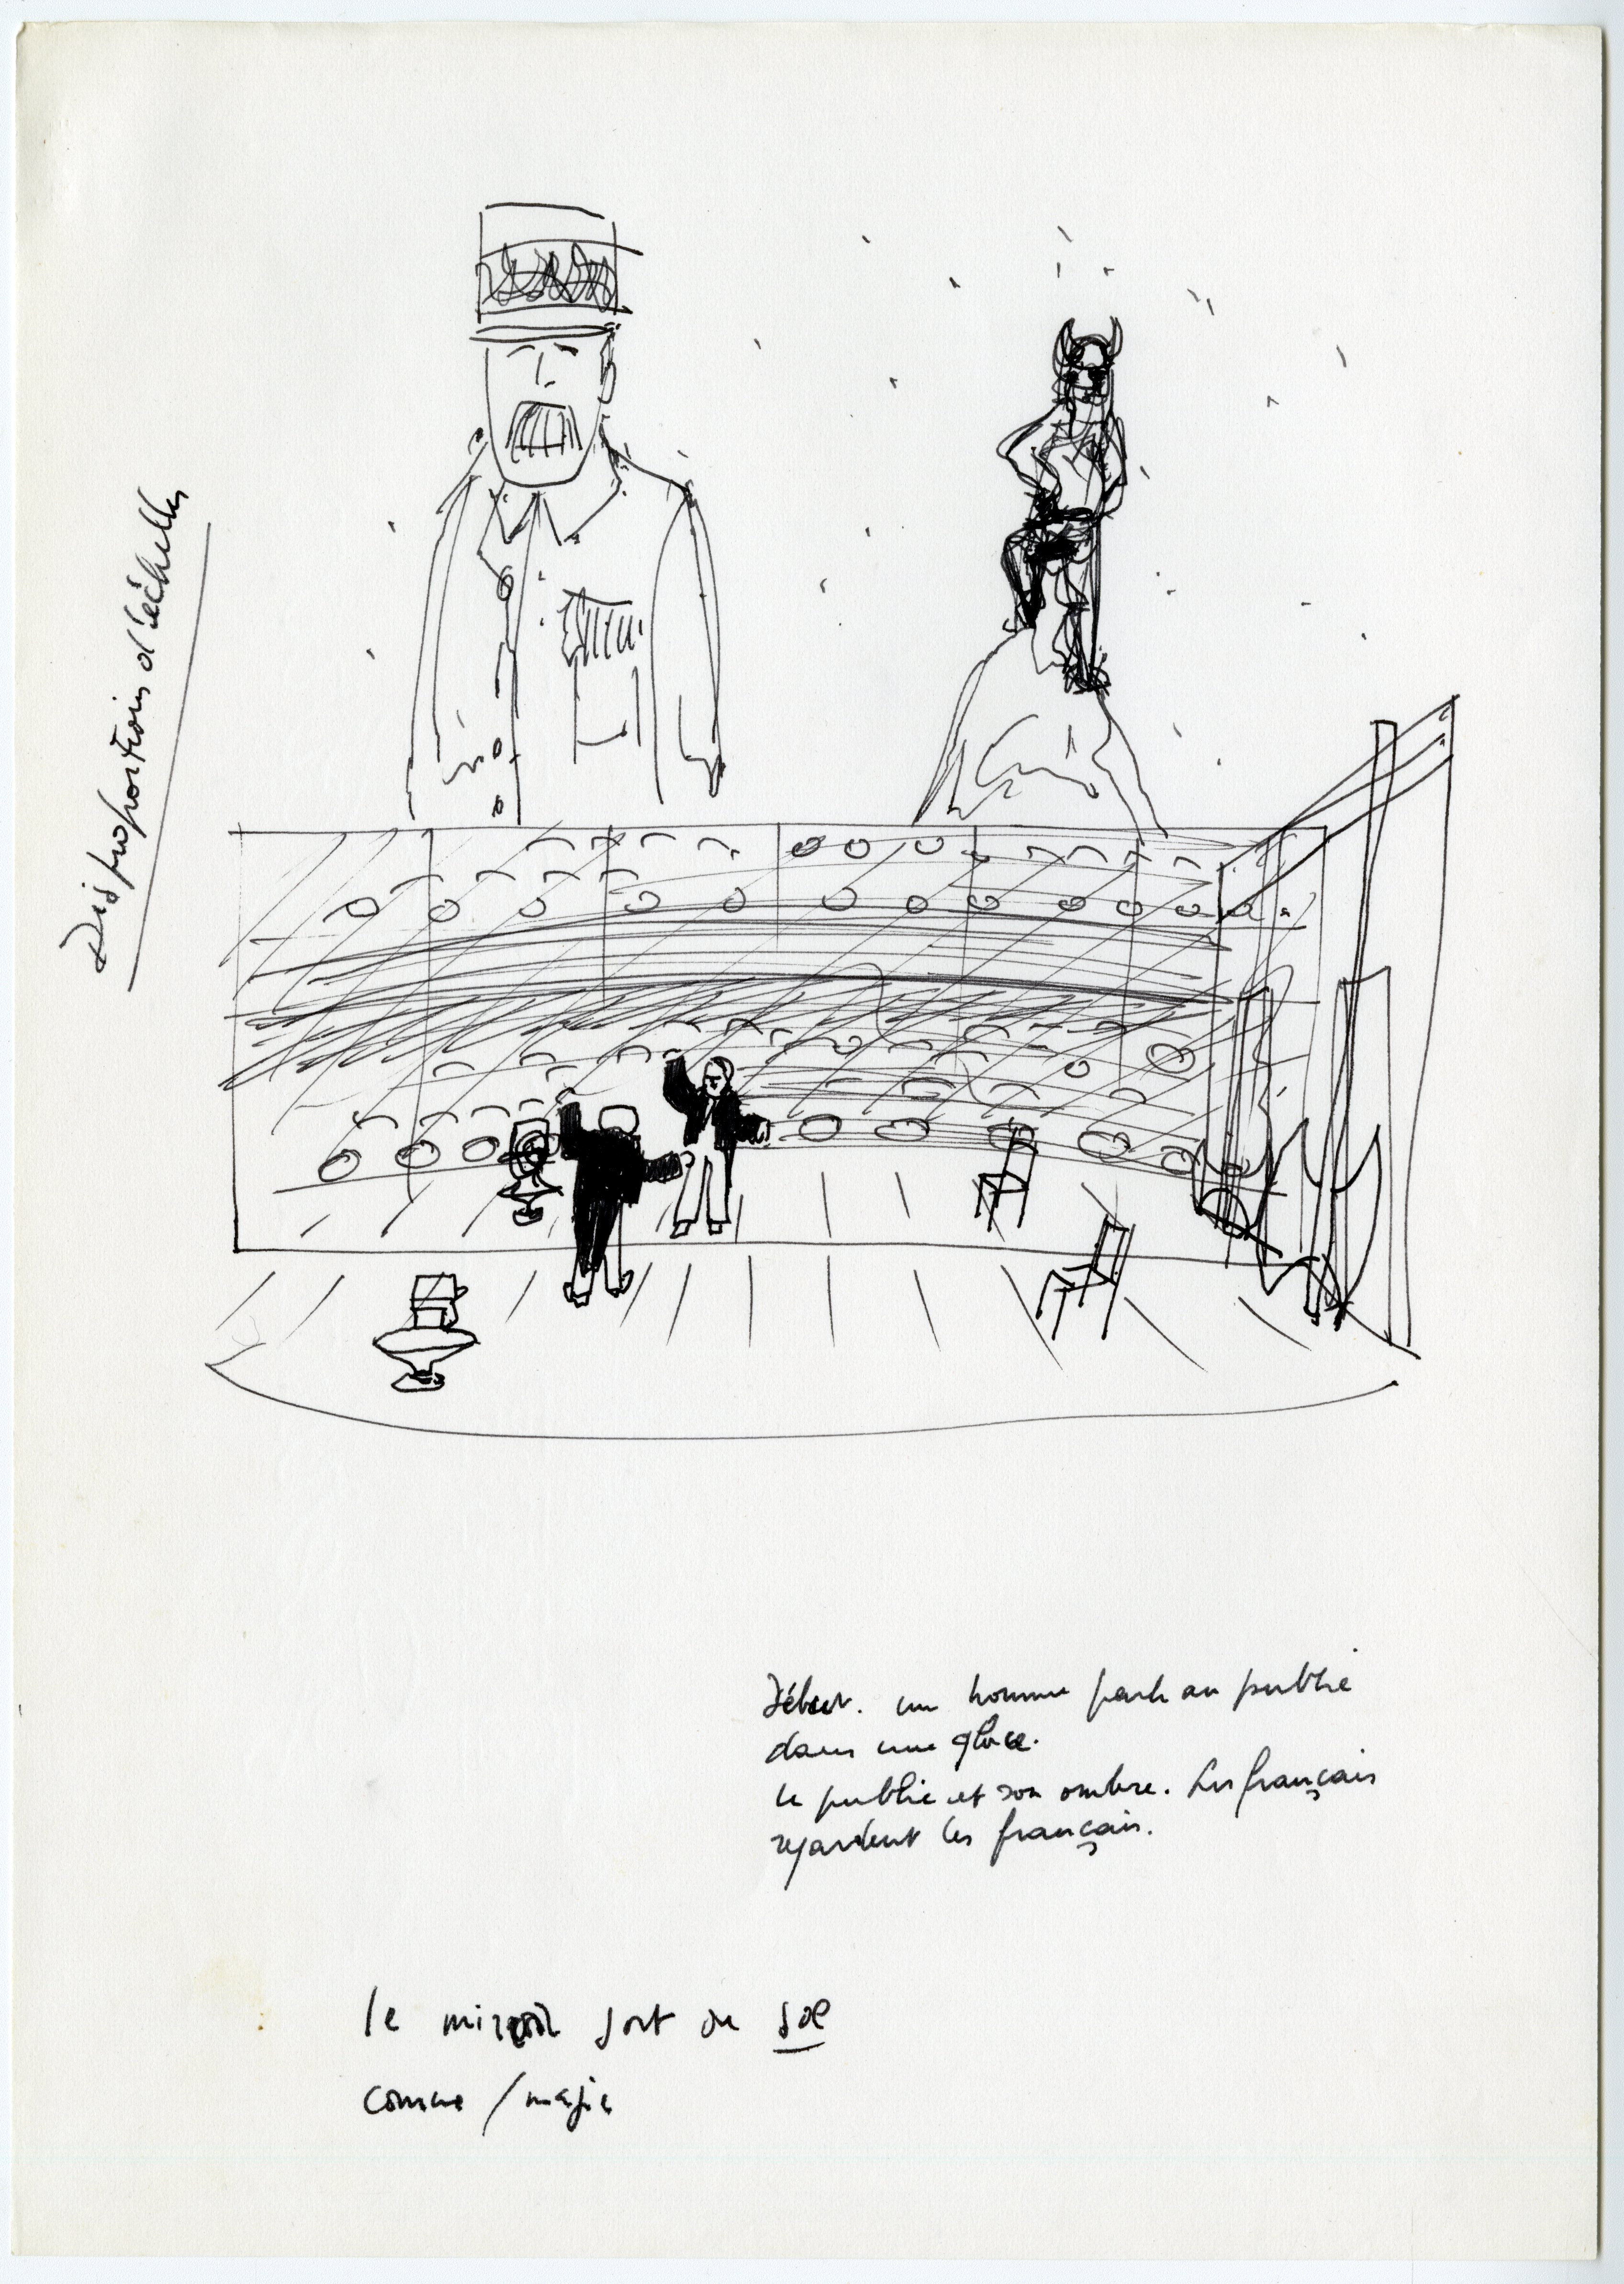 Disproportions d'échelles
Début. un homme parle au public
dans une glace.
le public et son ombre. Les français
regardent les français.
le miroir sort du sol
comme / magie